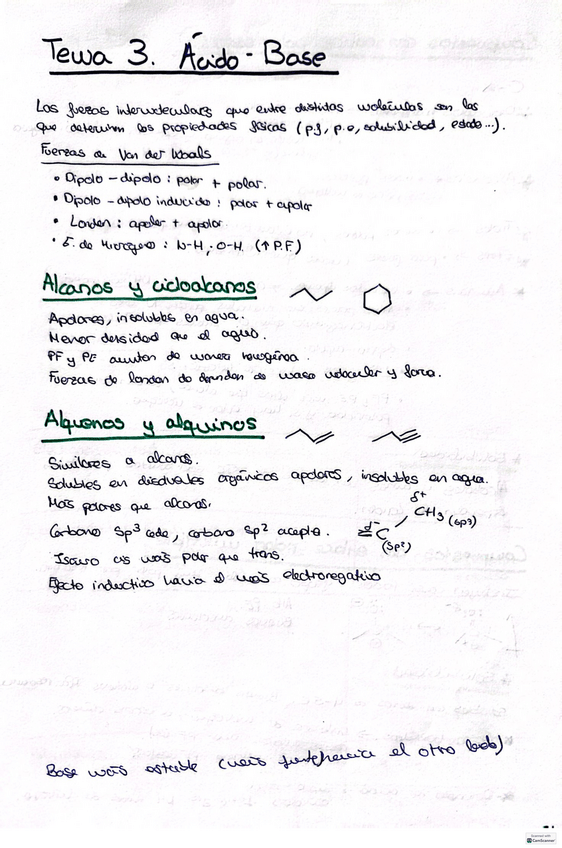 Tema 3. Ácido - Base
Las fuerzas intermoleculares que entre distintas moléculas son las
que determinan las propiedades físicas (p.f, p.e, solubilidad, estado...).
Fuerzas de Van der Waals
• Dipolo - dipolo : polar + polar.
• Dipolo - dipolo inducido : polar + apolar
• London : apolar + apolar
• E. de Hidrógeno : N-H, O-H (↑ P.F)
Alcanos y cicloalcanos
Apolares, insolubles en agua.
Menor densidad que el agua.
PF y PE aumentan de manera homogénea.
Fuerzas de London dependen de masa molecular y forma.
Alquenos y alquinos
Similares a alcanos.
Solubles en disolventes orgánicos apolares, insolubles en agua.
Más polares que alcanos.
δ+
CH3 (sp3)
Carbono Sp3 cede, carbono Sp2 acepta.
δ-
=C
(sp2)
Isómero cis más polar que trans.
Efecto inductivo hacia el más electronegativo
Base más estable (más fuerte hacia el otro lado)
CamScanner